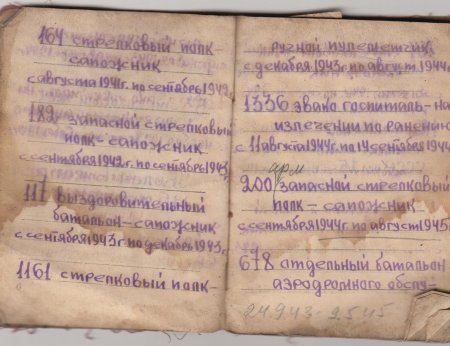 164 стрелковый полк-
сапожник
с августа 1941г. по сентябрь 1942г.
182 запасной стрелковый
полк - сапожник
с сентября 1942г. по сентябрь 1943г.
117 выздоровительный
батальон - сапожник
с сентября 1943г. по декабрь 1943г.
1161 стрелковый полк-
ручной пулеметчик
с декабря 1943г. по август 1944г.
1336 эвако госпиталь - на
излечении по ранению
с 11 августа 1944г. по 19 сентября 1944г.
арм
200 запасной стрелковый
полк - сапожник
с сентября 1944г. по август 1945г.
678 отдельный батальон
аэродромного обслу-